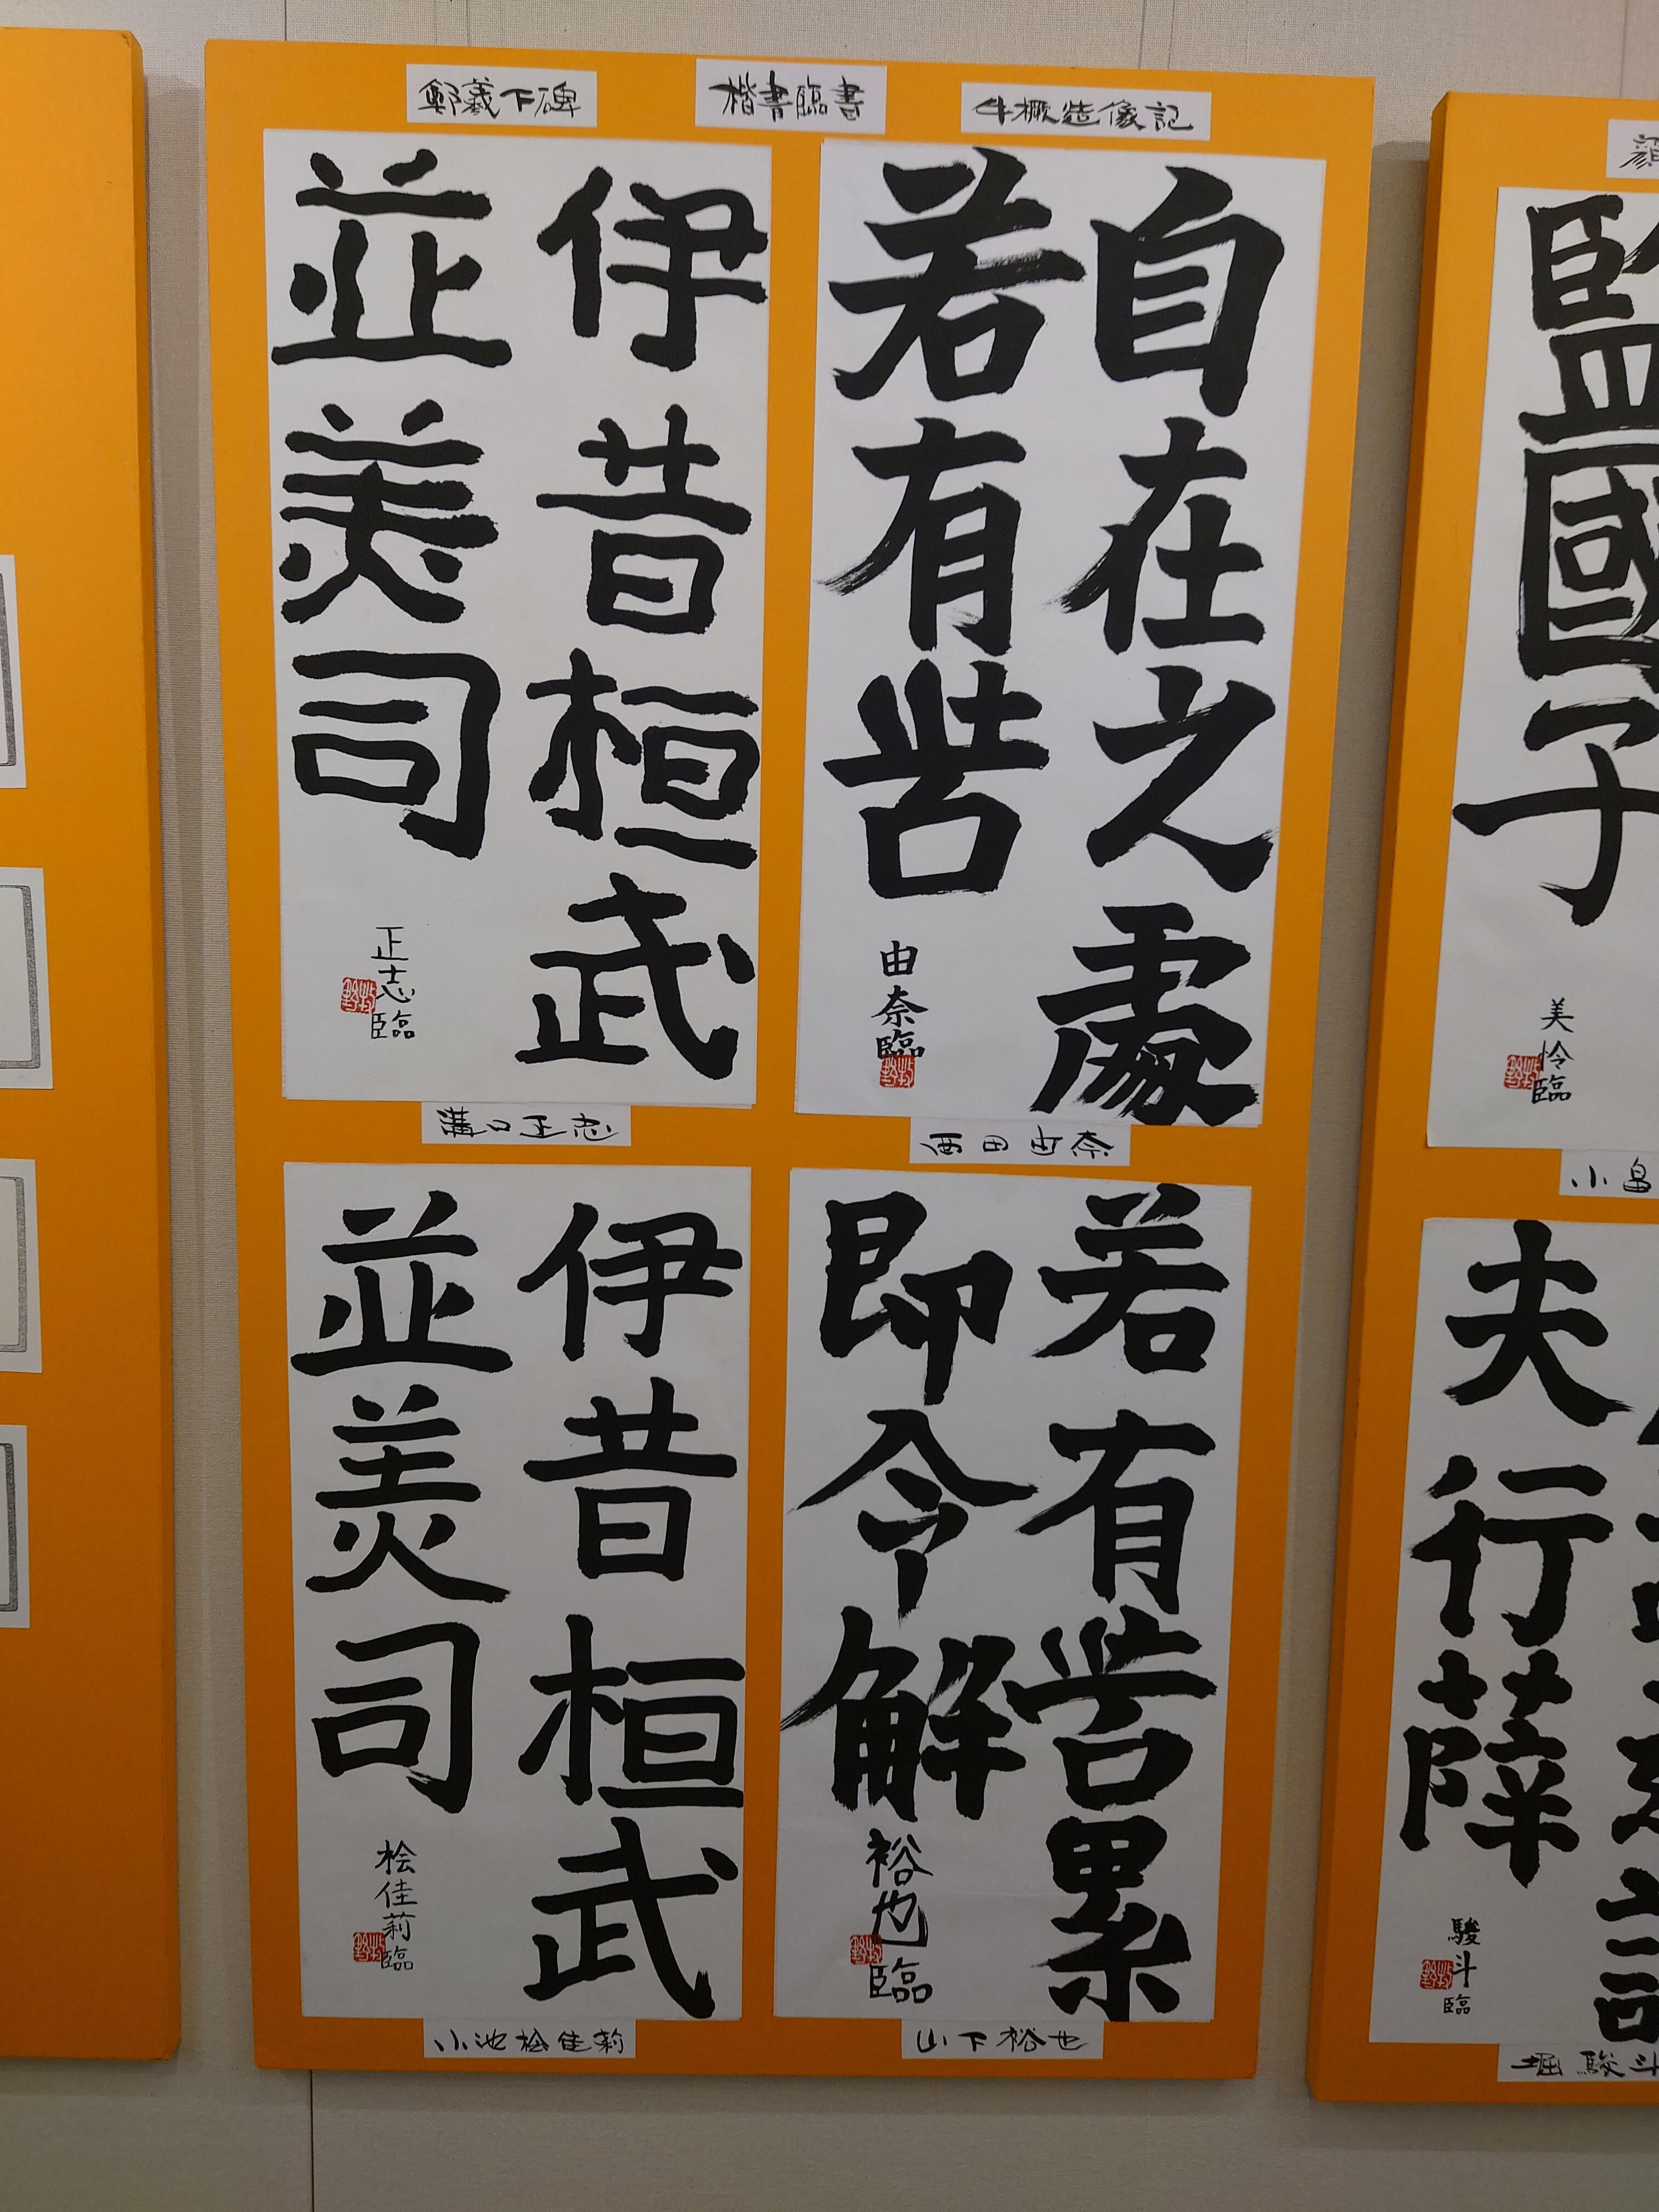 楷書臨書
牛橛造像記
自在之處
若有苦
由奈臨
西田由奈
若有苦累
即令解
裕也臨
山下裕也
鄭羲下碑
伊昔桓武
並美司
正志臨
溝口正志
伊昔桓武
並美司
桧佳莉臨
小池桧佳莉
監國子
美怜臨
小畠
夫行薛
駿斗臨
堀駿斗